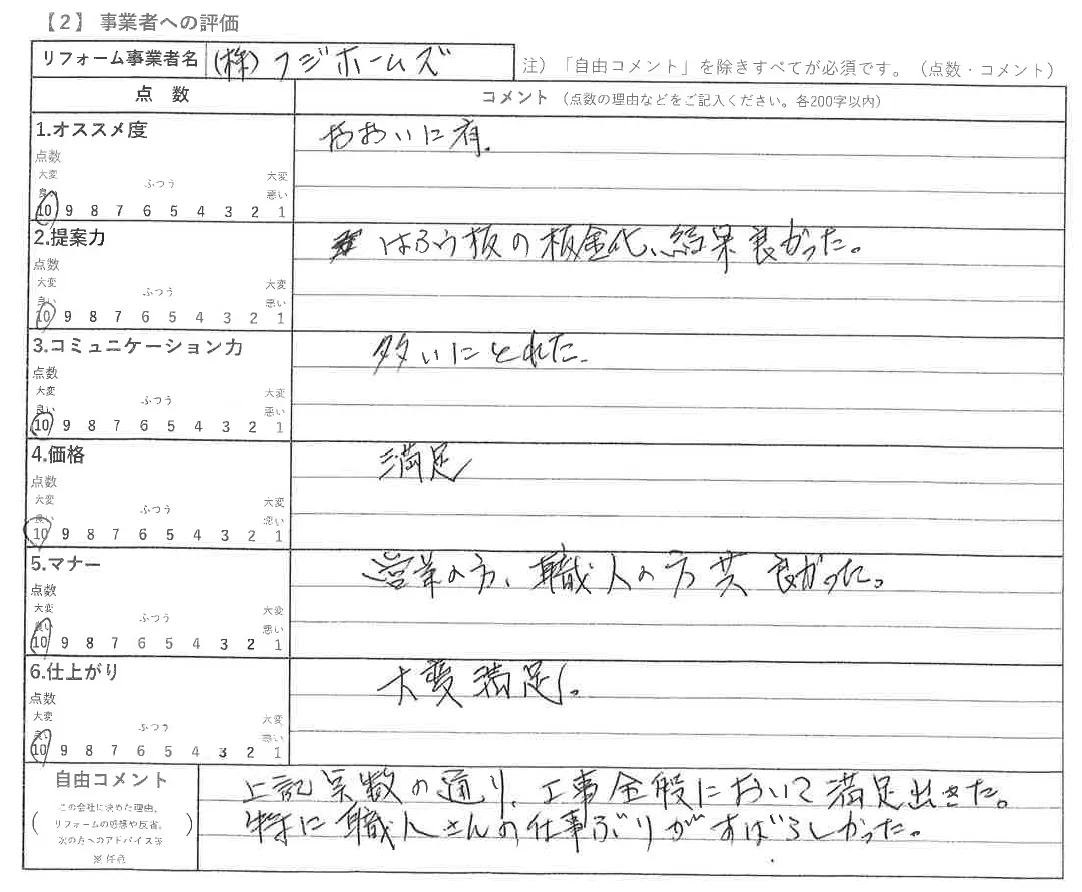 【2】 事業者への評価
リフォーム事業者名 (株)フジホームズ
注）「自由コメント」を除きすべてが必須です。（点数・コメント）
点 数 コメント（点数の理由などをご記入ください。各200字以内）
1.オススメ度
おおいに有.
点数
大変 ふつう 大変
良い 悪い
10 9 8 7 6 5 4 3 2 1
2.提案力
はふう板の板金化、結果良かった。
点数
大変 ふつう 大変
良い 悪い
10 9 8 7 6 5 4 3 2 1
3.コミュニケーション力
多いにとれた.
点数
大変 ふつう 大変
良い 悪い
10 9 8 7 6 5 4 3 2 1
4.価格
満足
点数
大変 ふつう 大変
良い 悪い
10 9 8 7 6 5 4 3 2 1
5.マナー
営業の方、職人の方共良かった。
点数
大変 ふつう 大変
良い 悪い
10 9 8 7 6 5 4 3 2 1
6.仕上がり
大変満足。
点数
大変 ふつう 大変
良い 悪い
10 9 8 7 6 5 4 3 2 1
自由コメント
この会社に決めた理由、
リフォームの感想や反省、
次の方へのアドバイス等
※ 任意
上記点数の通り、工事全般において満足出きた。
特に職人さんの仕事ぶりがすばらしかった。